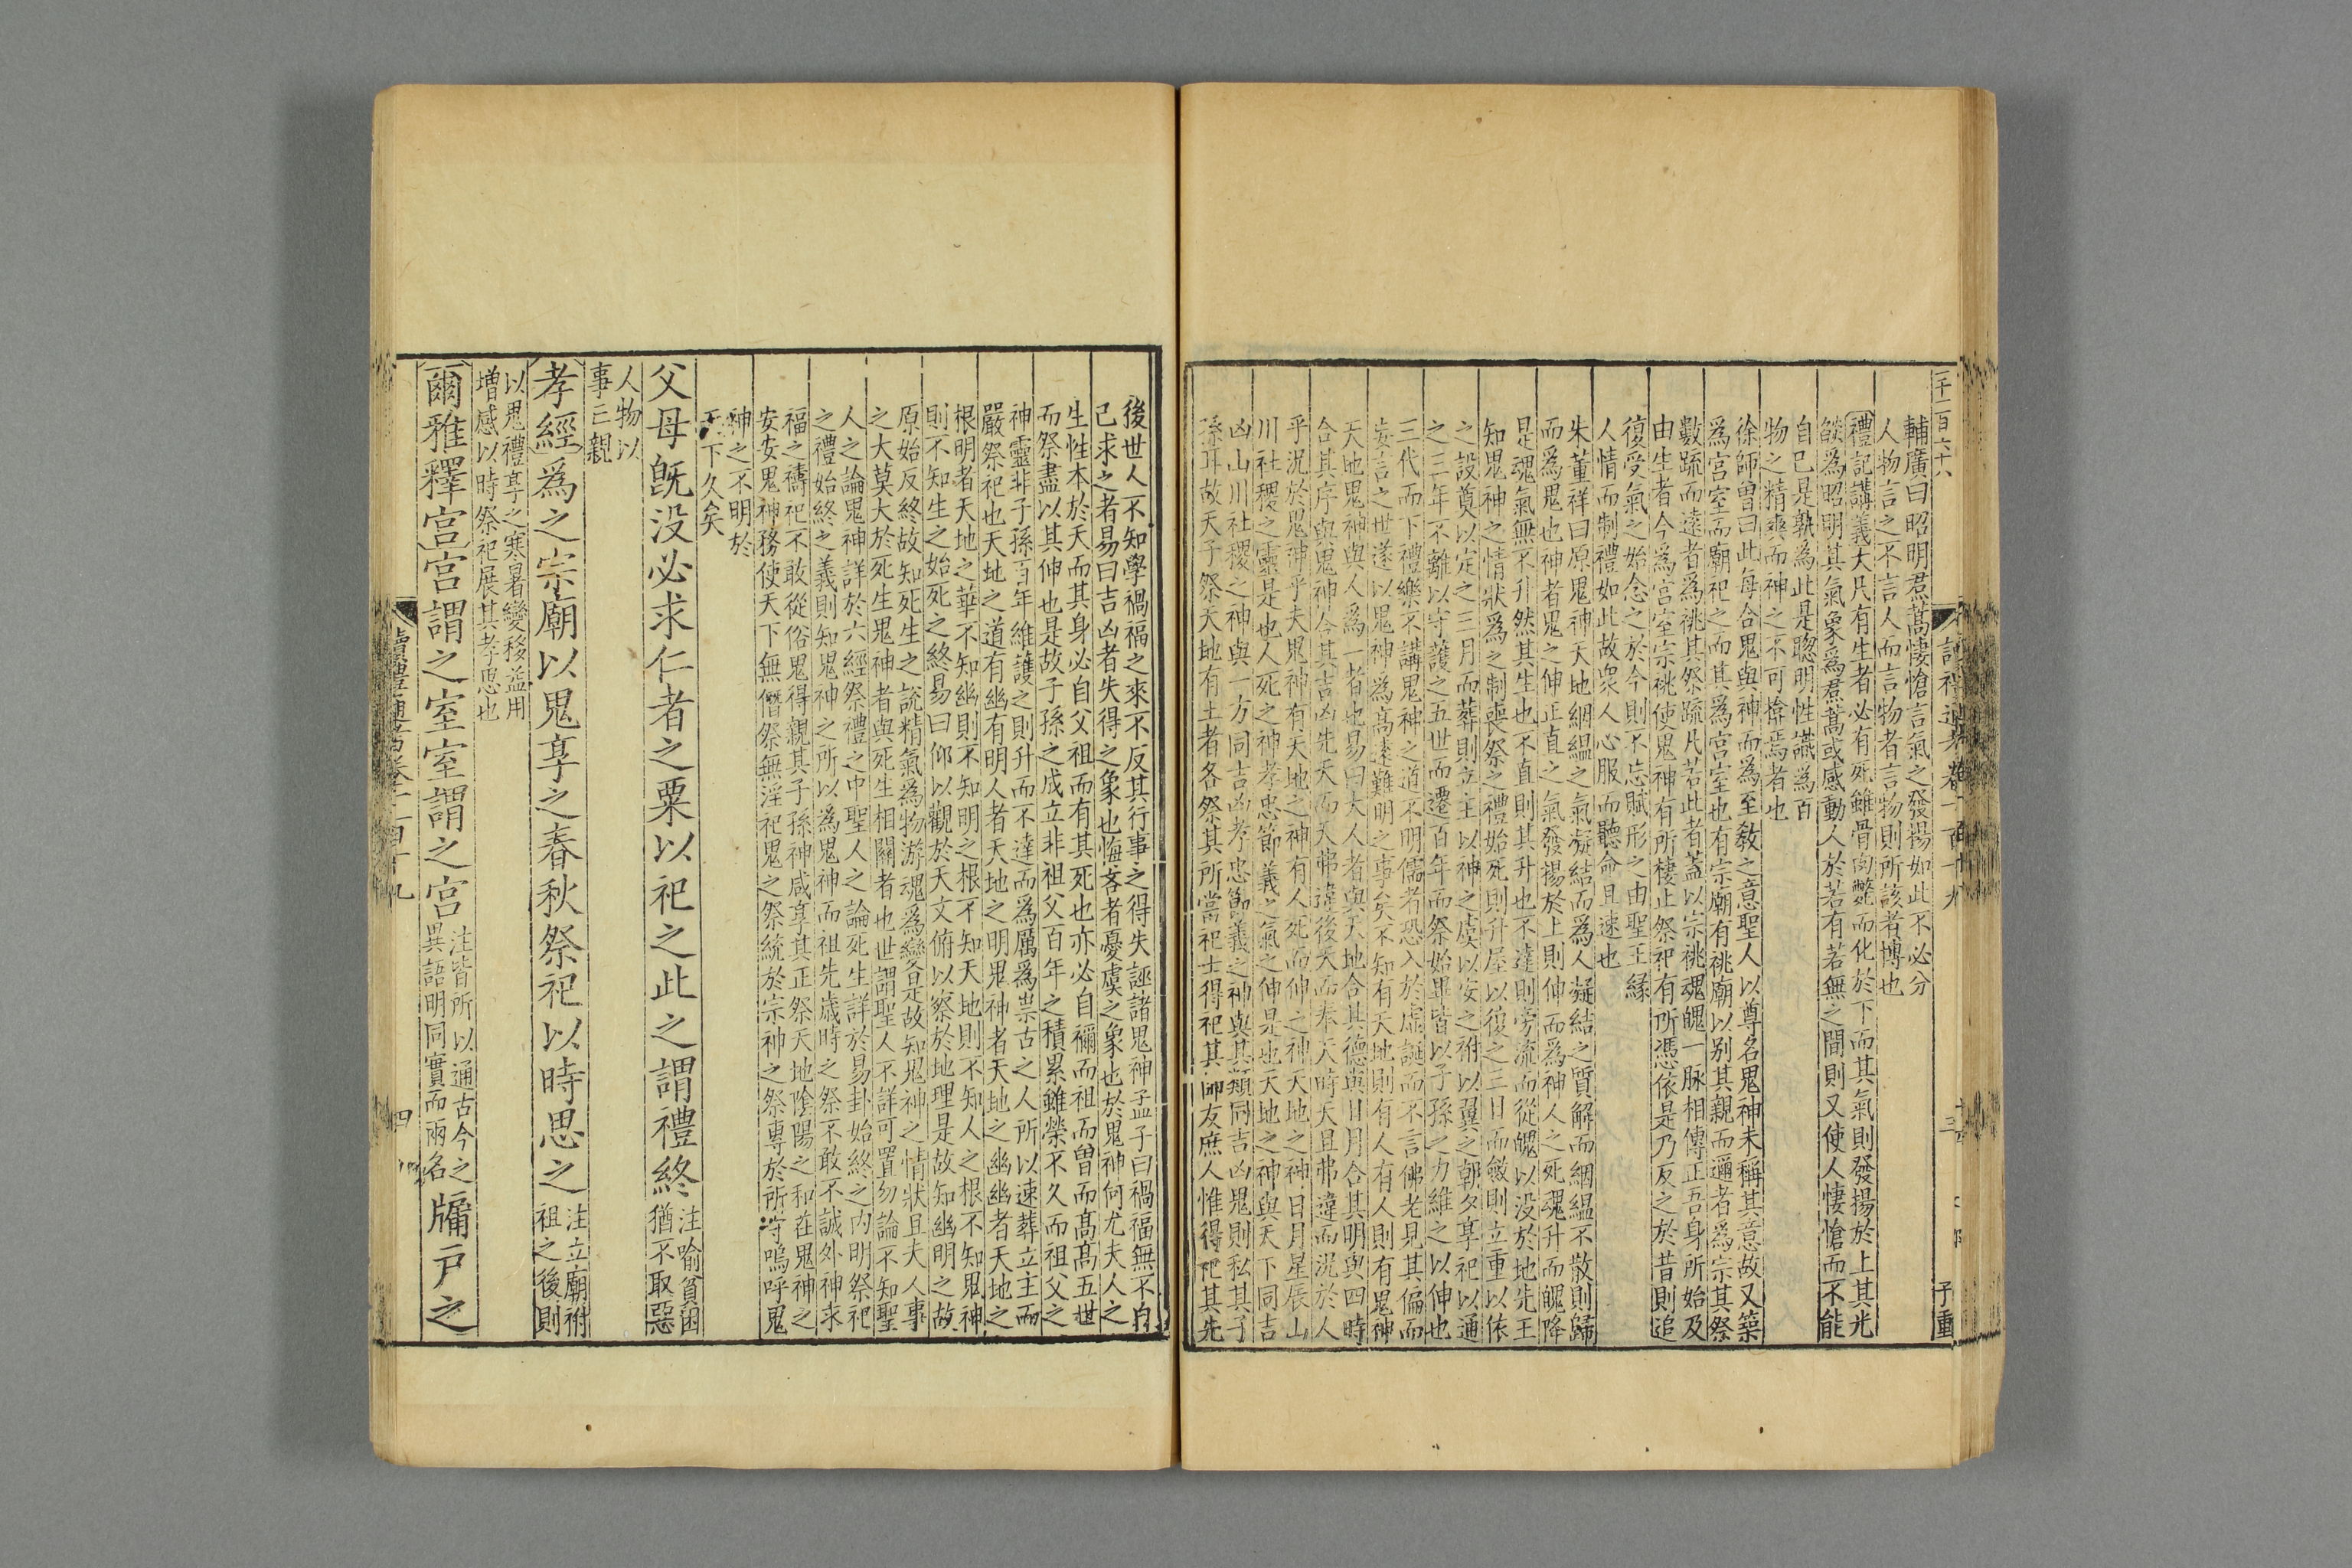 二千一百六十八
子重
輔廣曰昭明焄蒿悽愴言氣之發揚如此不必分
人物言之不言人而言物者言物則所該者博也
禮記講義大凡有生者必有死雖骨肉斃而化於下而其氣則發揚於上其光
燄為昭明其氣象為焄蒿或感動人於若有若無之間則又使人悽愴而不能
自已是孰為此是聰明性識為百
物之精爽而神之不可揜焉者也
徐師曾曰此毎合鬼與神而為至敎之意聖人以尊名鬼神未稱其意故又築
為宮室而廟祀之而其為宮室也有宗廟有祧廟以別其親而邇者為宗其祭
數疏而遠者為祧其祭疏凡若此者蓋以宗祧魂魄一脉相傳正吾身所始及
由生者今為宮室宗祧使鬼神有所棲止祭祀有所憑依是乃反之於昔則追
復受氣之始念之於今則不忘賦形之由聖王緣
人情而制禮如此故衆人心服而聽命且速也
朱董祥曰原鬼神天地絪縕之氣凝結而為人凝結之質解而絪縕不散則歸
而為鬼也神者鬼之伸正直之氣發揚於上則伸而為神人之死魂升而魄降
是魂氣無不升然其生也不直則其升也不達則旁流而從魄以没於地先王
知鬼神之情狀為之制喪祭之禮始死則升屋以復之三日而斂則立重以依
之設奠以定之三月而葬則立主以神之虞以安之祔以翼之朝夕享祀以通
之三年不離以守護之五世而遷百年而祭始畢皆以子孫之力維之以伸也
三代而下禮樂不講鬼神之道不明儒者恐入於虛誕而不言佛老見其偏而
妄言之世遂以鬼神為高遠難明之事矣不知有天地則有人有人則有鬼神
天地鬼神與人為一者也易曰大人者與天地合其德與日月合其明與四時
合其序與鬼神合其吉凶先天而天弗違後天而奉天時天且弗違而況於人
乎況於鬼神乎夫鬼神有天地之神有人死而伸之神天地之神日月星辰山
川社稷之靈是也人死之神孝忠節義之氣之伸是也天地之神與天下同吉
凶山川社稷之神與一方同吉凶孝忠節義之神與其類同吉凶鬼則私其子
孫耳故天子祭天地有土者各祭其所當祀士得祀其師友庶人惟得祀其先
後世人不知學禍福之來不反其行事之得失誣諸鬼神孟子曰禍福無不自
己求之者易曰吉凶者失得之象也悔吝者憂虞之象也於鬼神何尤夫人之
生性本於天而其身必自父祖而有其死也亦必自禰而祖而曾而高高五世
而祭盡以其伸也是故子孫之成立非祖父百年之積累雖榮不久而祖父之
神靈非子孫百年維護之則升而不達而為厲為祟古之人所以速葬立主而
嚴祭祀也天地之道有幽有明人者天地之明鬼神者天地之幽幽者天地之
根明者天地之華不知幽則不知明之根不知天地則不知人之根不知鬼神
則不知生之始死之終易曰仰以觀於天文俯以察於地理是故知幽明之故
原始反終故知死生之說精氣為物游魂為變是故知鬼神之情狀且夫人事
之大莫大於死生鬼神者與死生相關者也世謂聖人不詳可置勿論不知聖
人之論鬼神詳於六經祭禮之中聖人之論死生詳於易卦始終之內明祭祀
之禮始終之義則知鬼神之所以為鬼神而祖先歲時之祭不敢不誠外神求
福之禱祀不敢從俗鬼得親其子孫神咸享其正祭天地陰陽之和在鬼神之
安安鬼神務使天下無僭祭無淫祀鬼之祭統於宗神之祭專於所守嗚呼鬼
神之不明於
天下久矣
父母旣没必求仁者之粟以祀之此之謂禮終
注喻貧困
猶不取惡
人物以
事亡親
孝經為之宗廟以鬼享之春秋祭祀以時思之
注立廟祔
祖之後則
以鬼禮享之寒暑變移益用
增感以時祭祀展其孝思也
爾雅釋宮宮謂之室室謂之宮
注皆所以通古今之
異語明同實而兩名
牖戶之
讀禮通考卷一百一十九
四